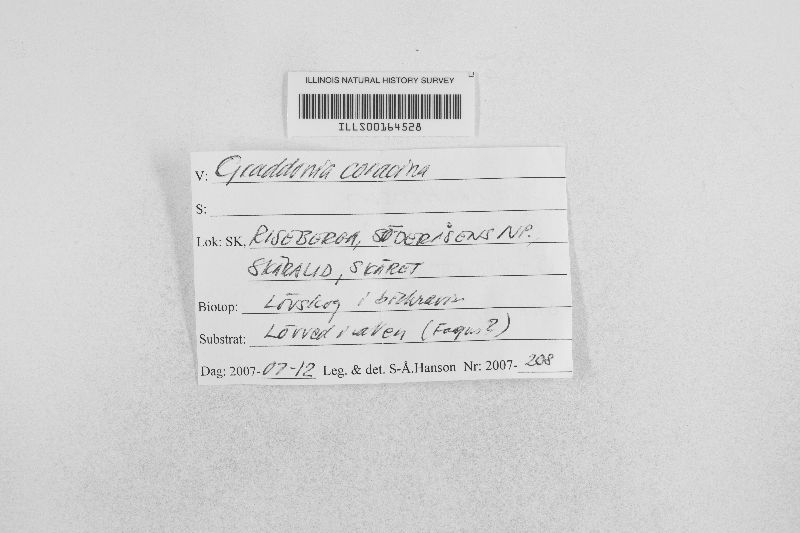 ILLINOIS NATURAL HISTORY SURVEY
ILLS00164528
V: Graddonia coracina
S:
Lok: SK, RISEBERGA, SÖDERÅSENS NP.,
SKÄRALID, SKÄRET
Biotop: Lövskog i bäckravin
Substrat: Lövved i vatten (Fagus?)
Dag: 2007-07-12 Leg. & det. S-Å.Hanson Nr: 2007-208